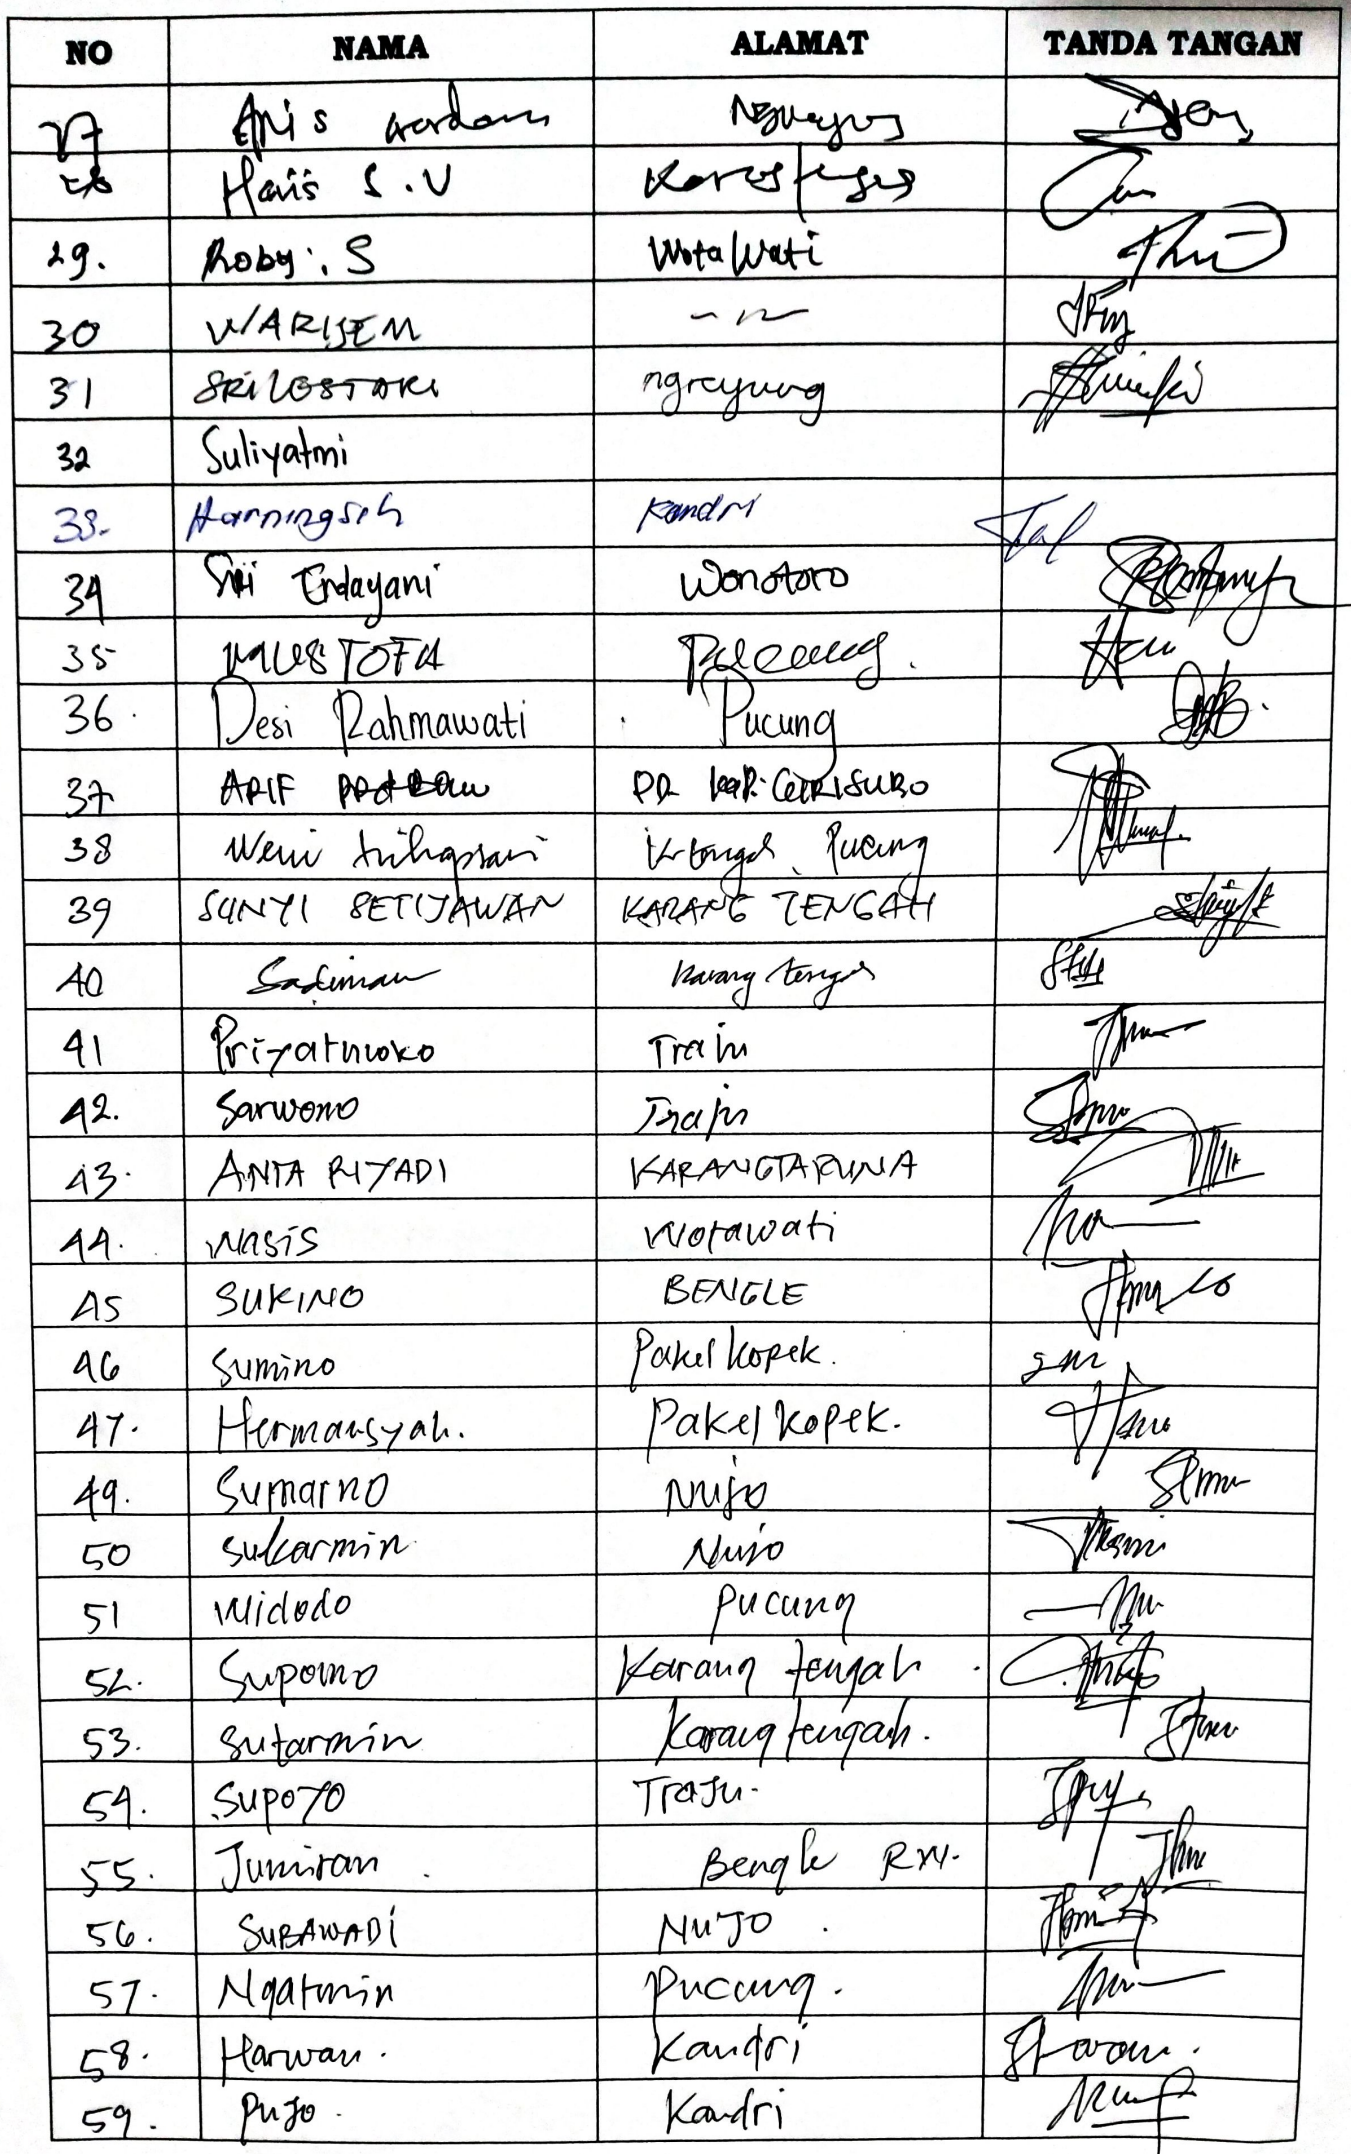 NO NAMA ALAMAT TANDA TANGAN
27 Anis wardani
28 Haris S.V
29. Roby. S WotaWati
30 WARIJEM
31 SRI LESTARI ngrejung
32 Suliyatmi
33. Harningsih Kandri
34 Sri Endayani Wonotoro
35 MUSTOFA Pucung.
36. Desi Rahmawati Pucung
37 ARIF
38 Weni K tengah Pucung
39 SUNYI SETIJAWAN KARANG TENGAH
40 Sadiman Karang tengah
41 Priyatmoko Traju
42. Sarwono Traju
43. ANTA RIYADI KARANGTARUNA
44. WASIS Wotawati
45 SUKINO BENGLE
46 Sumino Pakel Kopek.
47. Hermansyah. Pakel Kopek.
49. Sumarno Nujo
50 Sukarmin Nujo
51 Widodo Pucung
52. Supomo Karang tengah
53. Sutarmin Karang tengah.
54. Supoyo Traju.
55. Jumiran Bengle
56. SUBAWADI NUJO
57. Ngatmin Pucung.
58. Harwan. Kandri
59. Pujo. Kandri